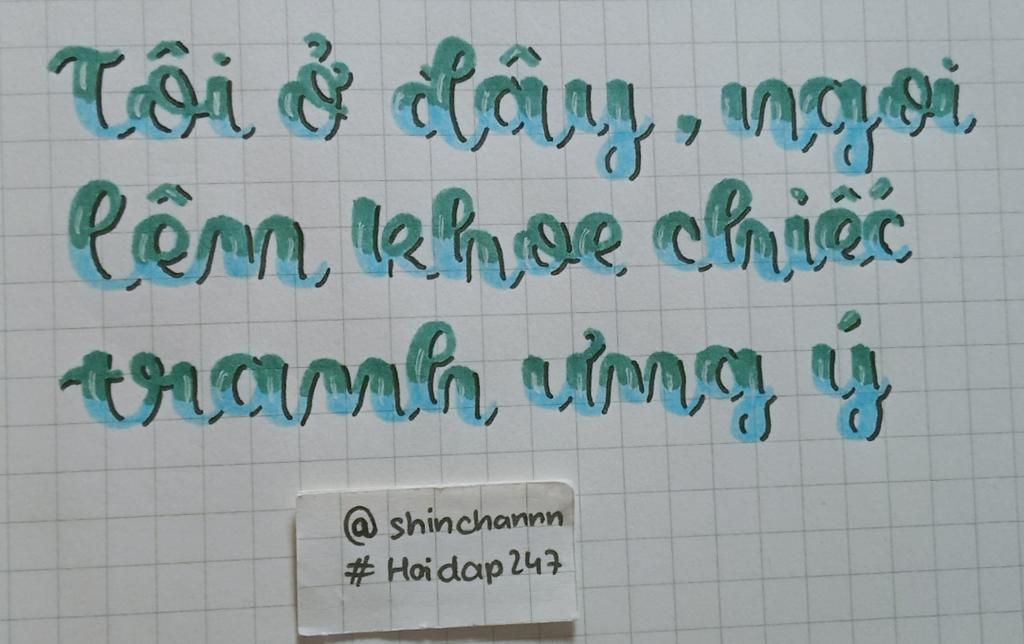 Tôi ở đây, ngoi
lên khoe chiếc
tranh ưng ý
@ shinchannn
# Hoidap247